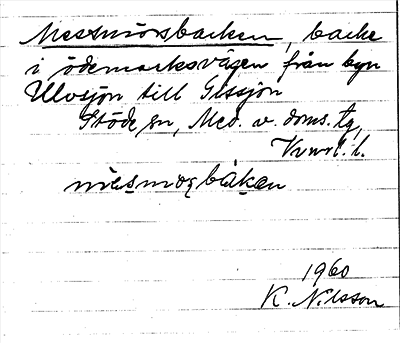 Messmörsbacken, backe
i ödemarksvägen från byn
Ulvsjön till Gissjön
Stöde sn, Med. v. doms. tg,
Vnrl. l.
mesmorbakan
1960
K. Nilsson